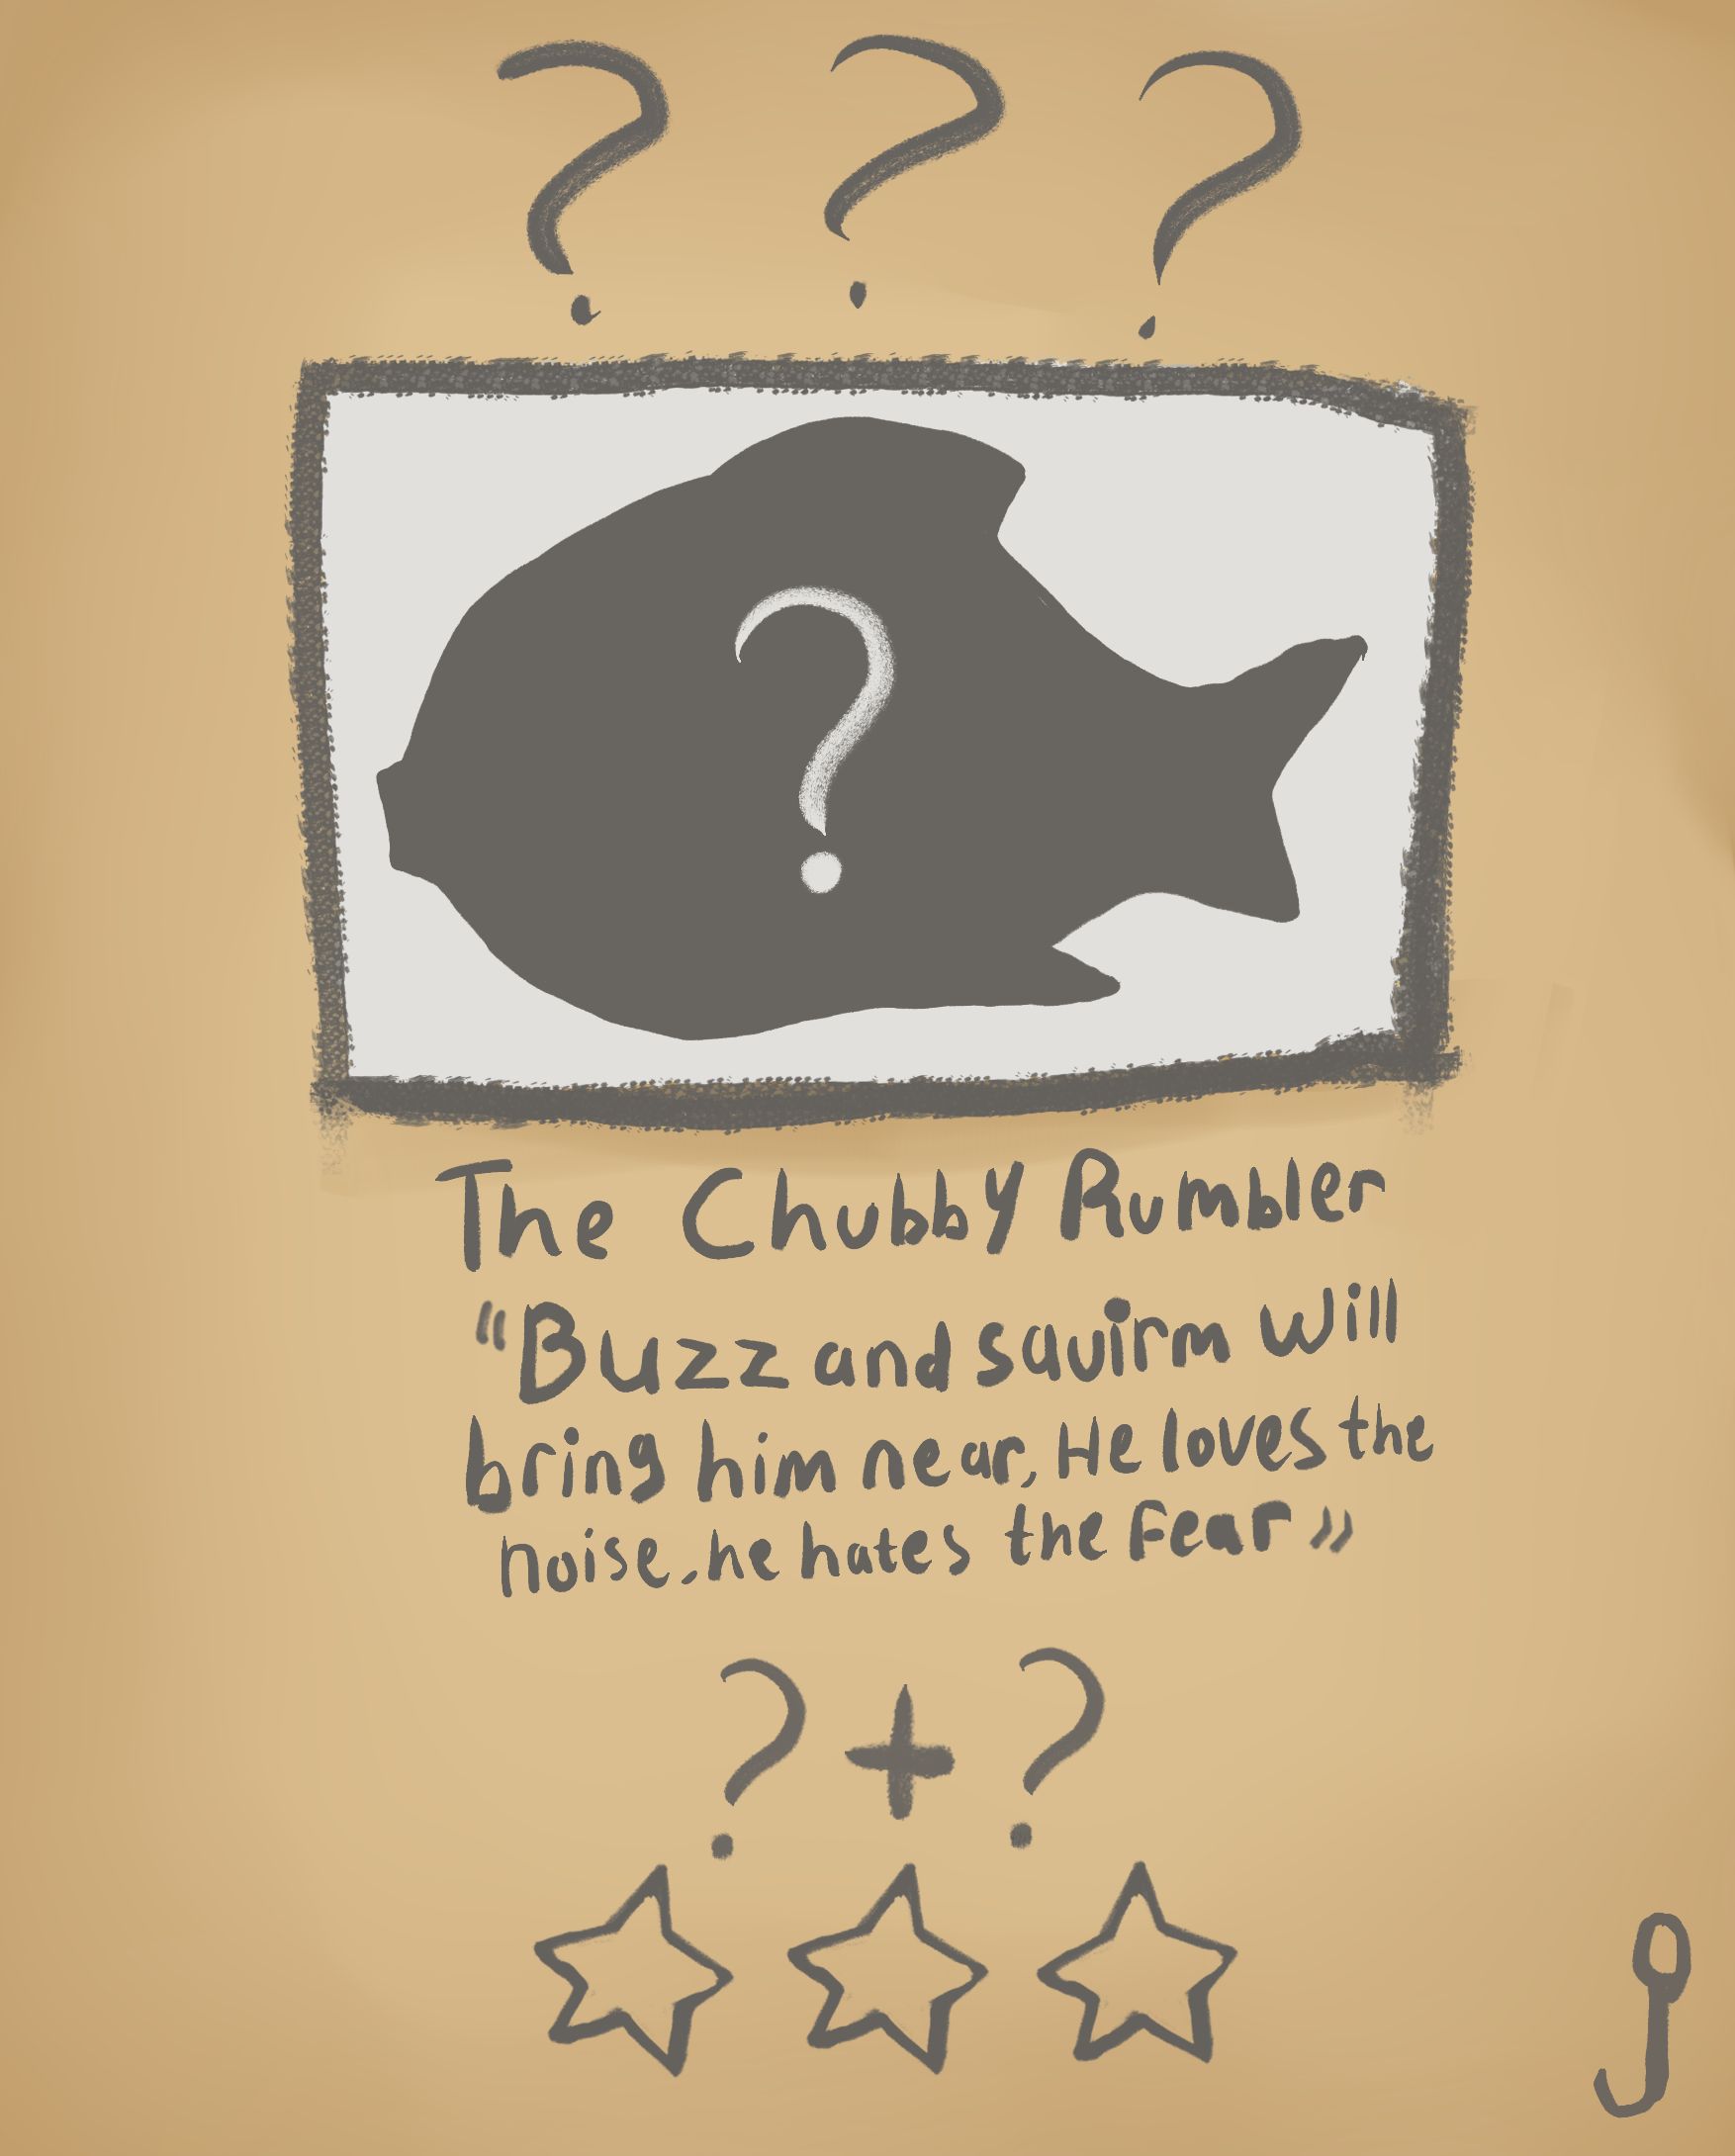 ? ? ?
?
The Chubby Rumbler
"Buzz and squirm will
bring him near, He loves the
noise, he hates the Fear"
? + ?